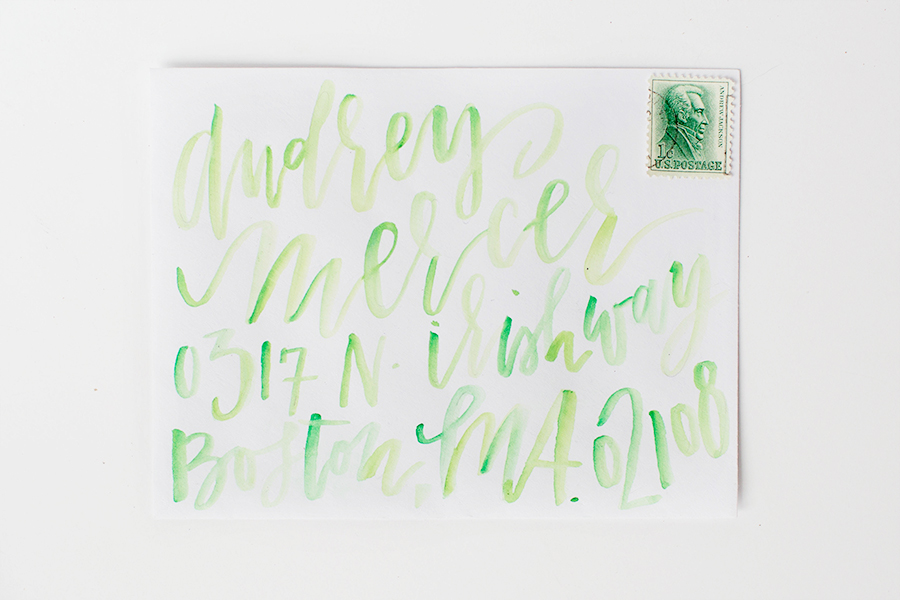 audrey
mercer
0317 N. irishway
Boston, MA. 02108
ANDREW JACKSON
1¢
U.S. POSTAGE